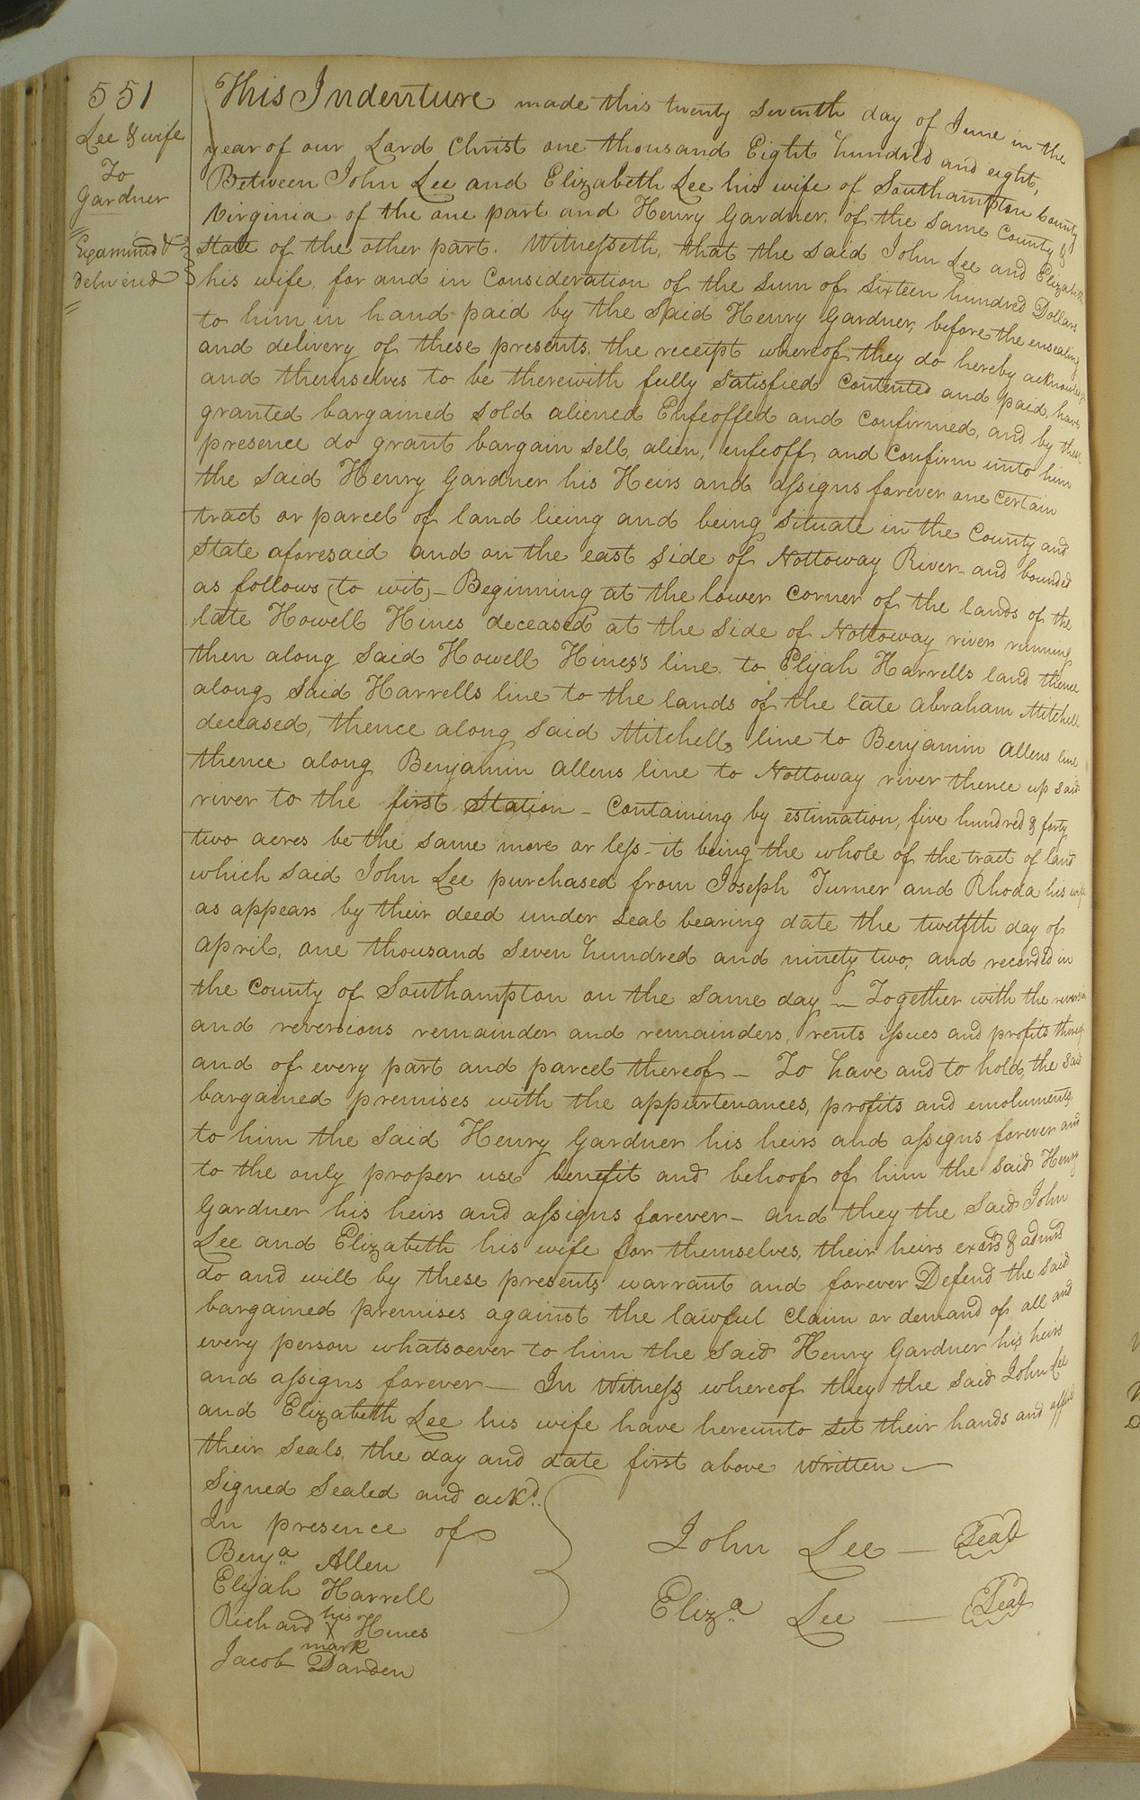 551
Lee & wife
To
Gardner
Examined &
delivered
This Indenture made this twenty seventh day of June in the
year of our Lord Christ one thousand Eight hundred and eight,
Between John Lee and Elizabeth Lee his wife of Southampton County
Virginia of the one part and Henry Gardner of the same County &
State of the other part. Witnesseth, that the said John Lee and Elizabeth
his wife, for and in Consideration of the sum of sixteen hundred Dollars
to him in hand paid by the said Henry Gardner, before the ensealing
and delivery of these presents, the receipt whereof they do hereby acknowledge
and themselves to be therewith fully satisfied contented and paid, have
granted bargained sold aliened Enfeoffed and confirmed, and by these
presence do grant bargain sell, alien, enfeoff and confirm unto him
the said Henry Gardner his Heirs and assigns forever one certain
tract or parcel of land lieing and being situate in the County and
State aforesaid and on the east side of Nottoway River and bounded
as follows (to wit) - Beginning at the lower corner of the lands of the
late Howell Hines deceased at the side of Nottoway river running
then along said Howell Hines's line to Elijah Harrells land thence
along said Harrells line to the lands of the late Abraham Mitchell
deceased, thence along said Mitchells line to Benjamin Allens line
thence along Benjamin Allens line to Nottoway river thence up said
river to the first Station - Containing by estimation, five hundred & forty
two acres be the same more or less - it being the whole of the tract of land
which said John Lee purchased from Joseph Turner and Rhoda his wife
as appears by their deed under seal bearing date the twelfth day of
April, one thousand seven hundred and ninety two, and recorded in
the County of Southampton on the same day - Together with the reversion
and reversions remainder and remainders, rents issues and profits thereof
and of every part and parcel thereof - To have and to hold, the said
bargained premises with the appurtenances, profits and emoluments
to him the said Henry Gardner his heirs and assigns forever and
to the only proper use benefit and behoof of him the said Henry
Gardner his heirs and assigns forever - and they the said John
Lee and Elizabeth his wife for themselves, their heirs exors & admrs
do and will by these presents warrant and forever Defend the said
bargained premises against the lawful claim or demand of all and
every person whatsoever to him the said Henry Gardner his heirs
and assigns forever - In Witness whereof they the said John Lee
and Elizabeth Lee his wife have hereunto set their hands and affixed
their seals, the day and date first above written -
Signed Sealed and ackd.
In presence of
Benja Allen
Elijah Harrell
Richard his X mark Hines
Jacob Darden
John Lee - Seal
Eliza Lee - Seal